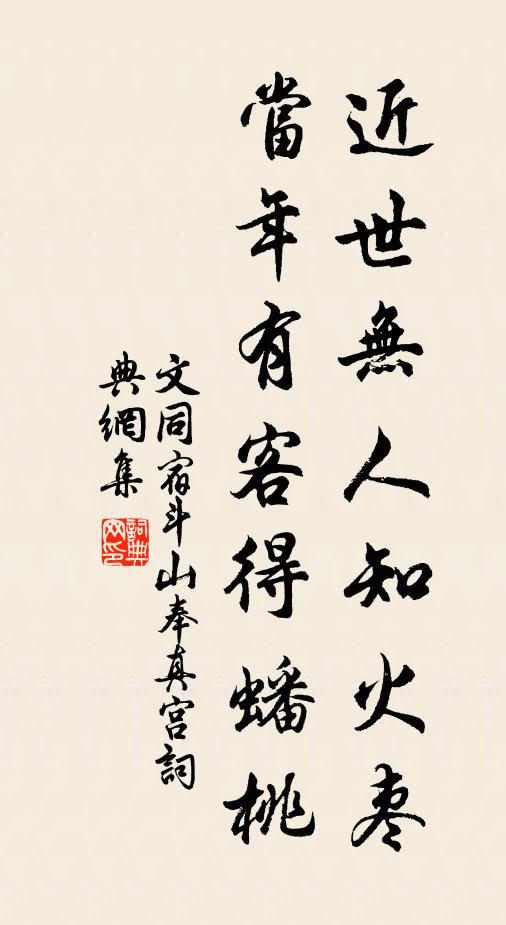 近世無人知火枣
當年有客得蟠桃
文同宿斗山奉真宫詞
典網集
詞典网印